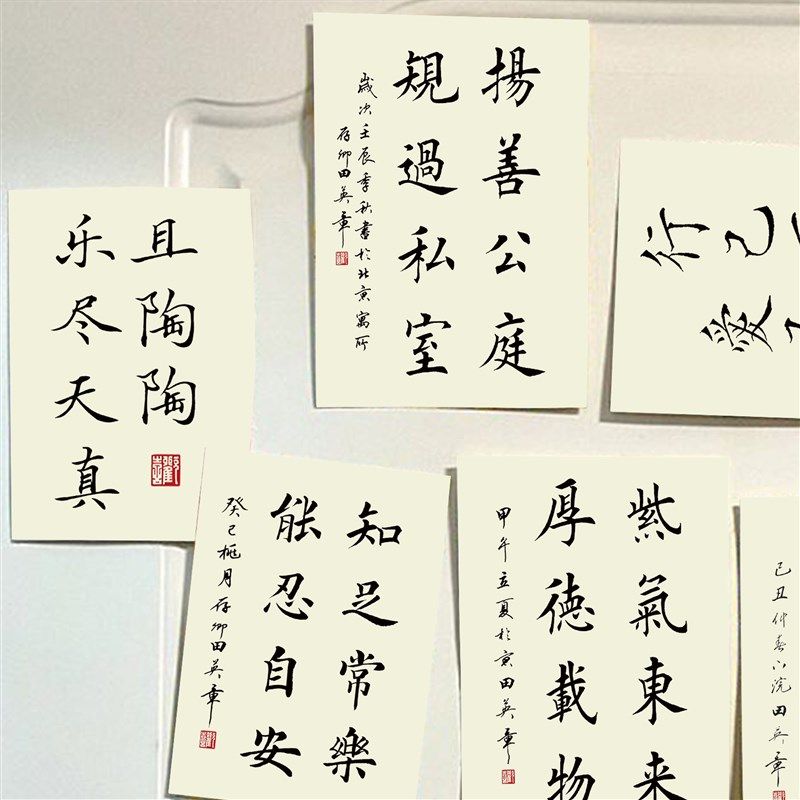 揚善公庭
規過私室
歲次壬辰季秋書於北京寓所
存卿田英章
行己
愛
且陶陶
乐尽天真
知足常樂
能忍自安
癸巳桃月存卿田英章
紫氣東来
厚德載物
甲午立夏於京田英章
己丑仲春小浣田英章